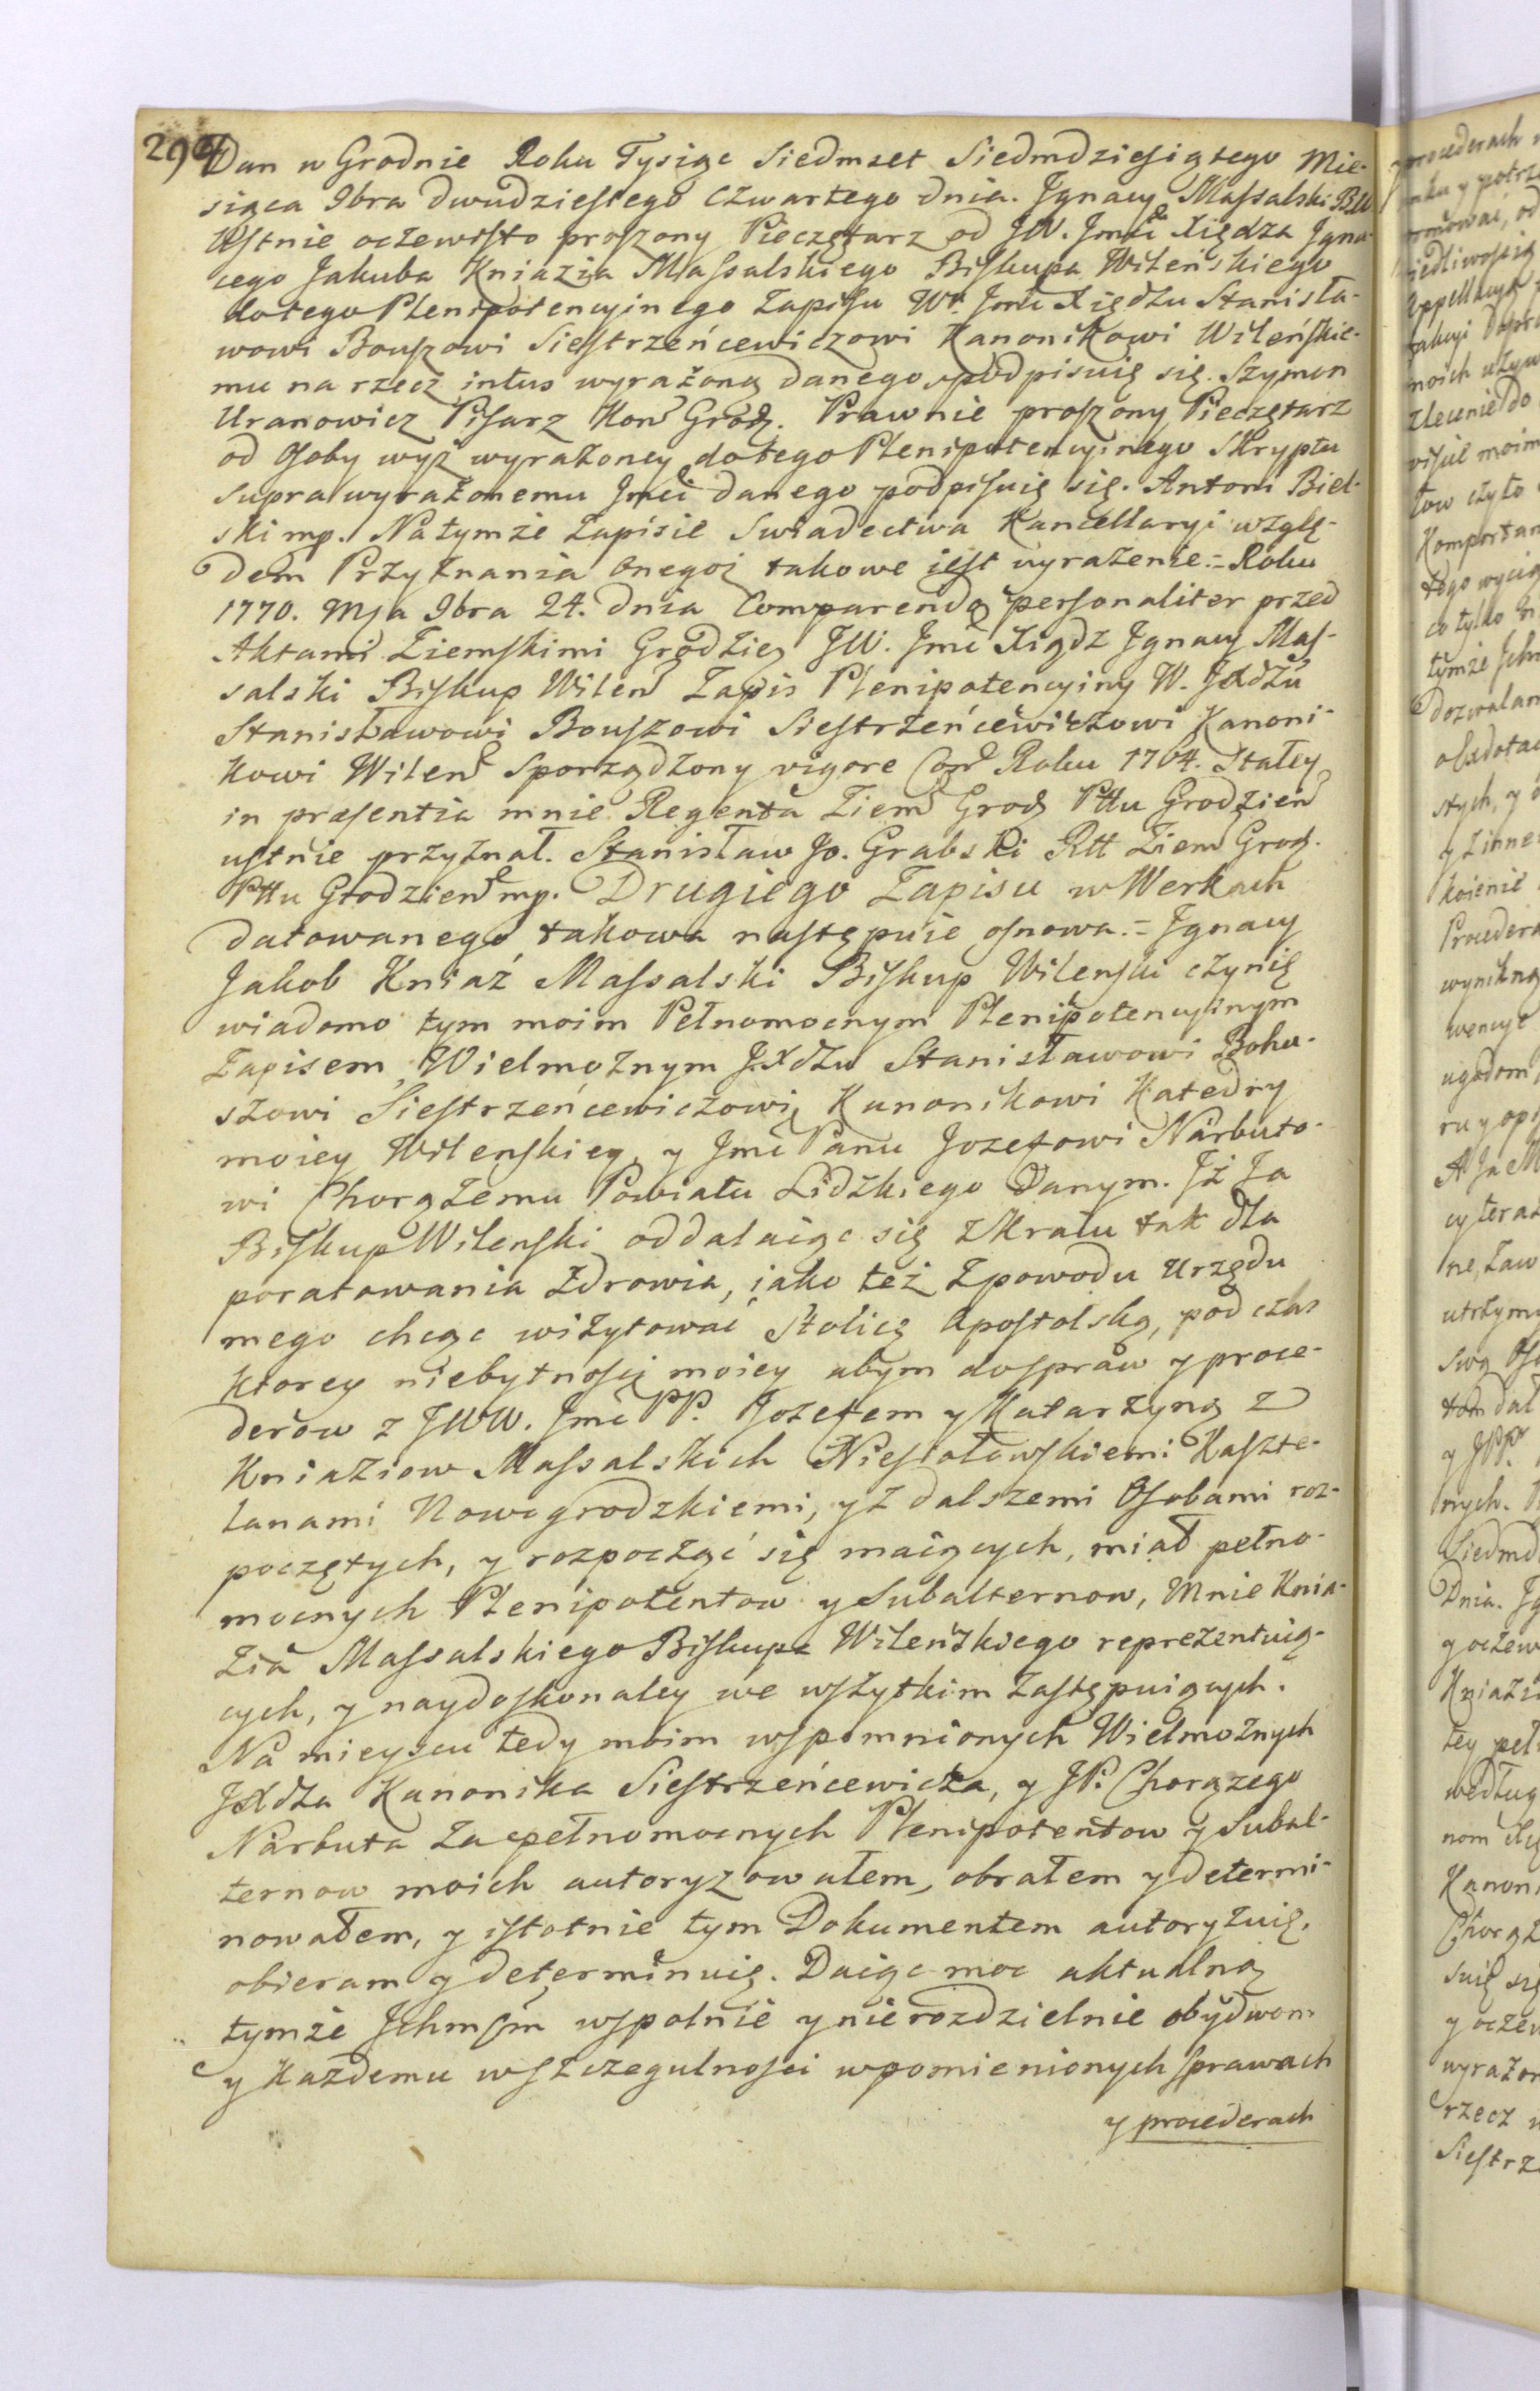 294
Dan w Grodnie Roku Tysiąc Siedmset Siedmdziesiątego Mie-
siąca 9bra dwudziestego czwartego dnia. Jgnacy Massalski BW
Ustnie oczewisto proszony Pieczętarz od JW. Jmci Xiędza Jgna-
cego Jakuba Kniazia Massalskiego Biskupa Wileńskiego
do tego Plenipotencyinego Zapisu W. Jmć Xiędzu Stanisła-
wowi Bouszowi Siestrzeńcewiczowi Kanonikowi Wileńskie-
mu na rzecz intus wyrażoną danego podpisuię się. Szymon
Uranowicz Pisarz Kon Grodz. Prawnie proszony Pieczętarz
od Osoby wyż wyrażoney do tego Plenipotencyinego Skryptu
supra wyrażonemu Jmci danego podpisuię się. Antoni Biel-
ski mp. Na tymże Zapisie Swiadectwa Kancellaryi wzglę-
dem Przyznania Onegoż takowe iest wyrażenie.= Roku
1770. Mja 9bra 24. dnia Comparendo personaliter przed
Aktami Ziemskimi Grodzień JW. Jmć Xiądz Jgnacy Mas-
salski Biskup Wilen Zapis Plenipotencyiny W. JXdzu
Stanisławowi Bouszowi Siestrzeńcewiczowi Kanoni-
kowi Wilen Sporządzony vigore Con Roku 1764. Stałey
in præsentia mnie Regenta Ziem Grodz Pttu Grodzień
ustnie przyznał. Stanisław Jo. Grabski Rtt Ziem Grodz.
Pttu Grodzień mp. Drugiego Zapisu w Werkach
datowanego, takowa następuie osnowa.= Jgnacy
Jakob Kniaź Massalski Biskup Wilenski czynię
wiadomo tym moim Pełnomocnym Plenipotencyinym
Zapisem, Wielmożnym JXdzu Stanisławowi Bohu-
szowi Siestrzeńcewiczowi, Kanonikowi Katedry
moiey Wilenskiey, y Jmć Panu Jozefowi Narbuto-
wi Chorążemu Powiatu Lidzkiego Danym. Jż Ja
Biskup Wilenski oddalaiąc się z Kraiu tak dla
poratowania Zdrowia, iako też z powodu Urzędu
mego chcąc wizytować Stolicę Apostolską, pod czas
ktorey niebytności moiey abym do spraw y proce-
derow z JWW. Jmć PP. Jozefem y Katarzyną z
Kniaziow Massalskich Niesiołowskiemi Kaszte-
lanami Nowogrodzkiemi, y z dalszemi Osobami roz-
poczętych, y rozpocząć się maiących, miał pełno-
mocnych Plenipotentow y Subalternow, Mnie Knia-
zia Massalskiego Biskupa Wileńskiego reprezentuią-
cych, y naydoskonaley we wszytkim zastępuiących.
Na mieyscu tedy moim wspomnionych Wielmożnych
JXdza Kanonika Siestrzeńcewicza, y JP. Chorązego
Narbuta za pełnomocnych Plenipotentow y Subal-
ternow moich autoryzowałem, obrałem y determi-
nowałem, y istotnie tym Dokumentem autoryzuię,
obieram y determinuię. Daiąc moc aktualną
tymże Jchmsm wspolnie y nierozdzielnie obydwom
y Każdemu w szczegulności wpomienionych sprawach
y procederach